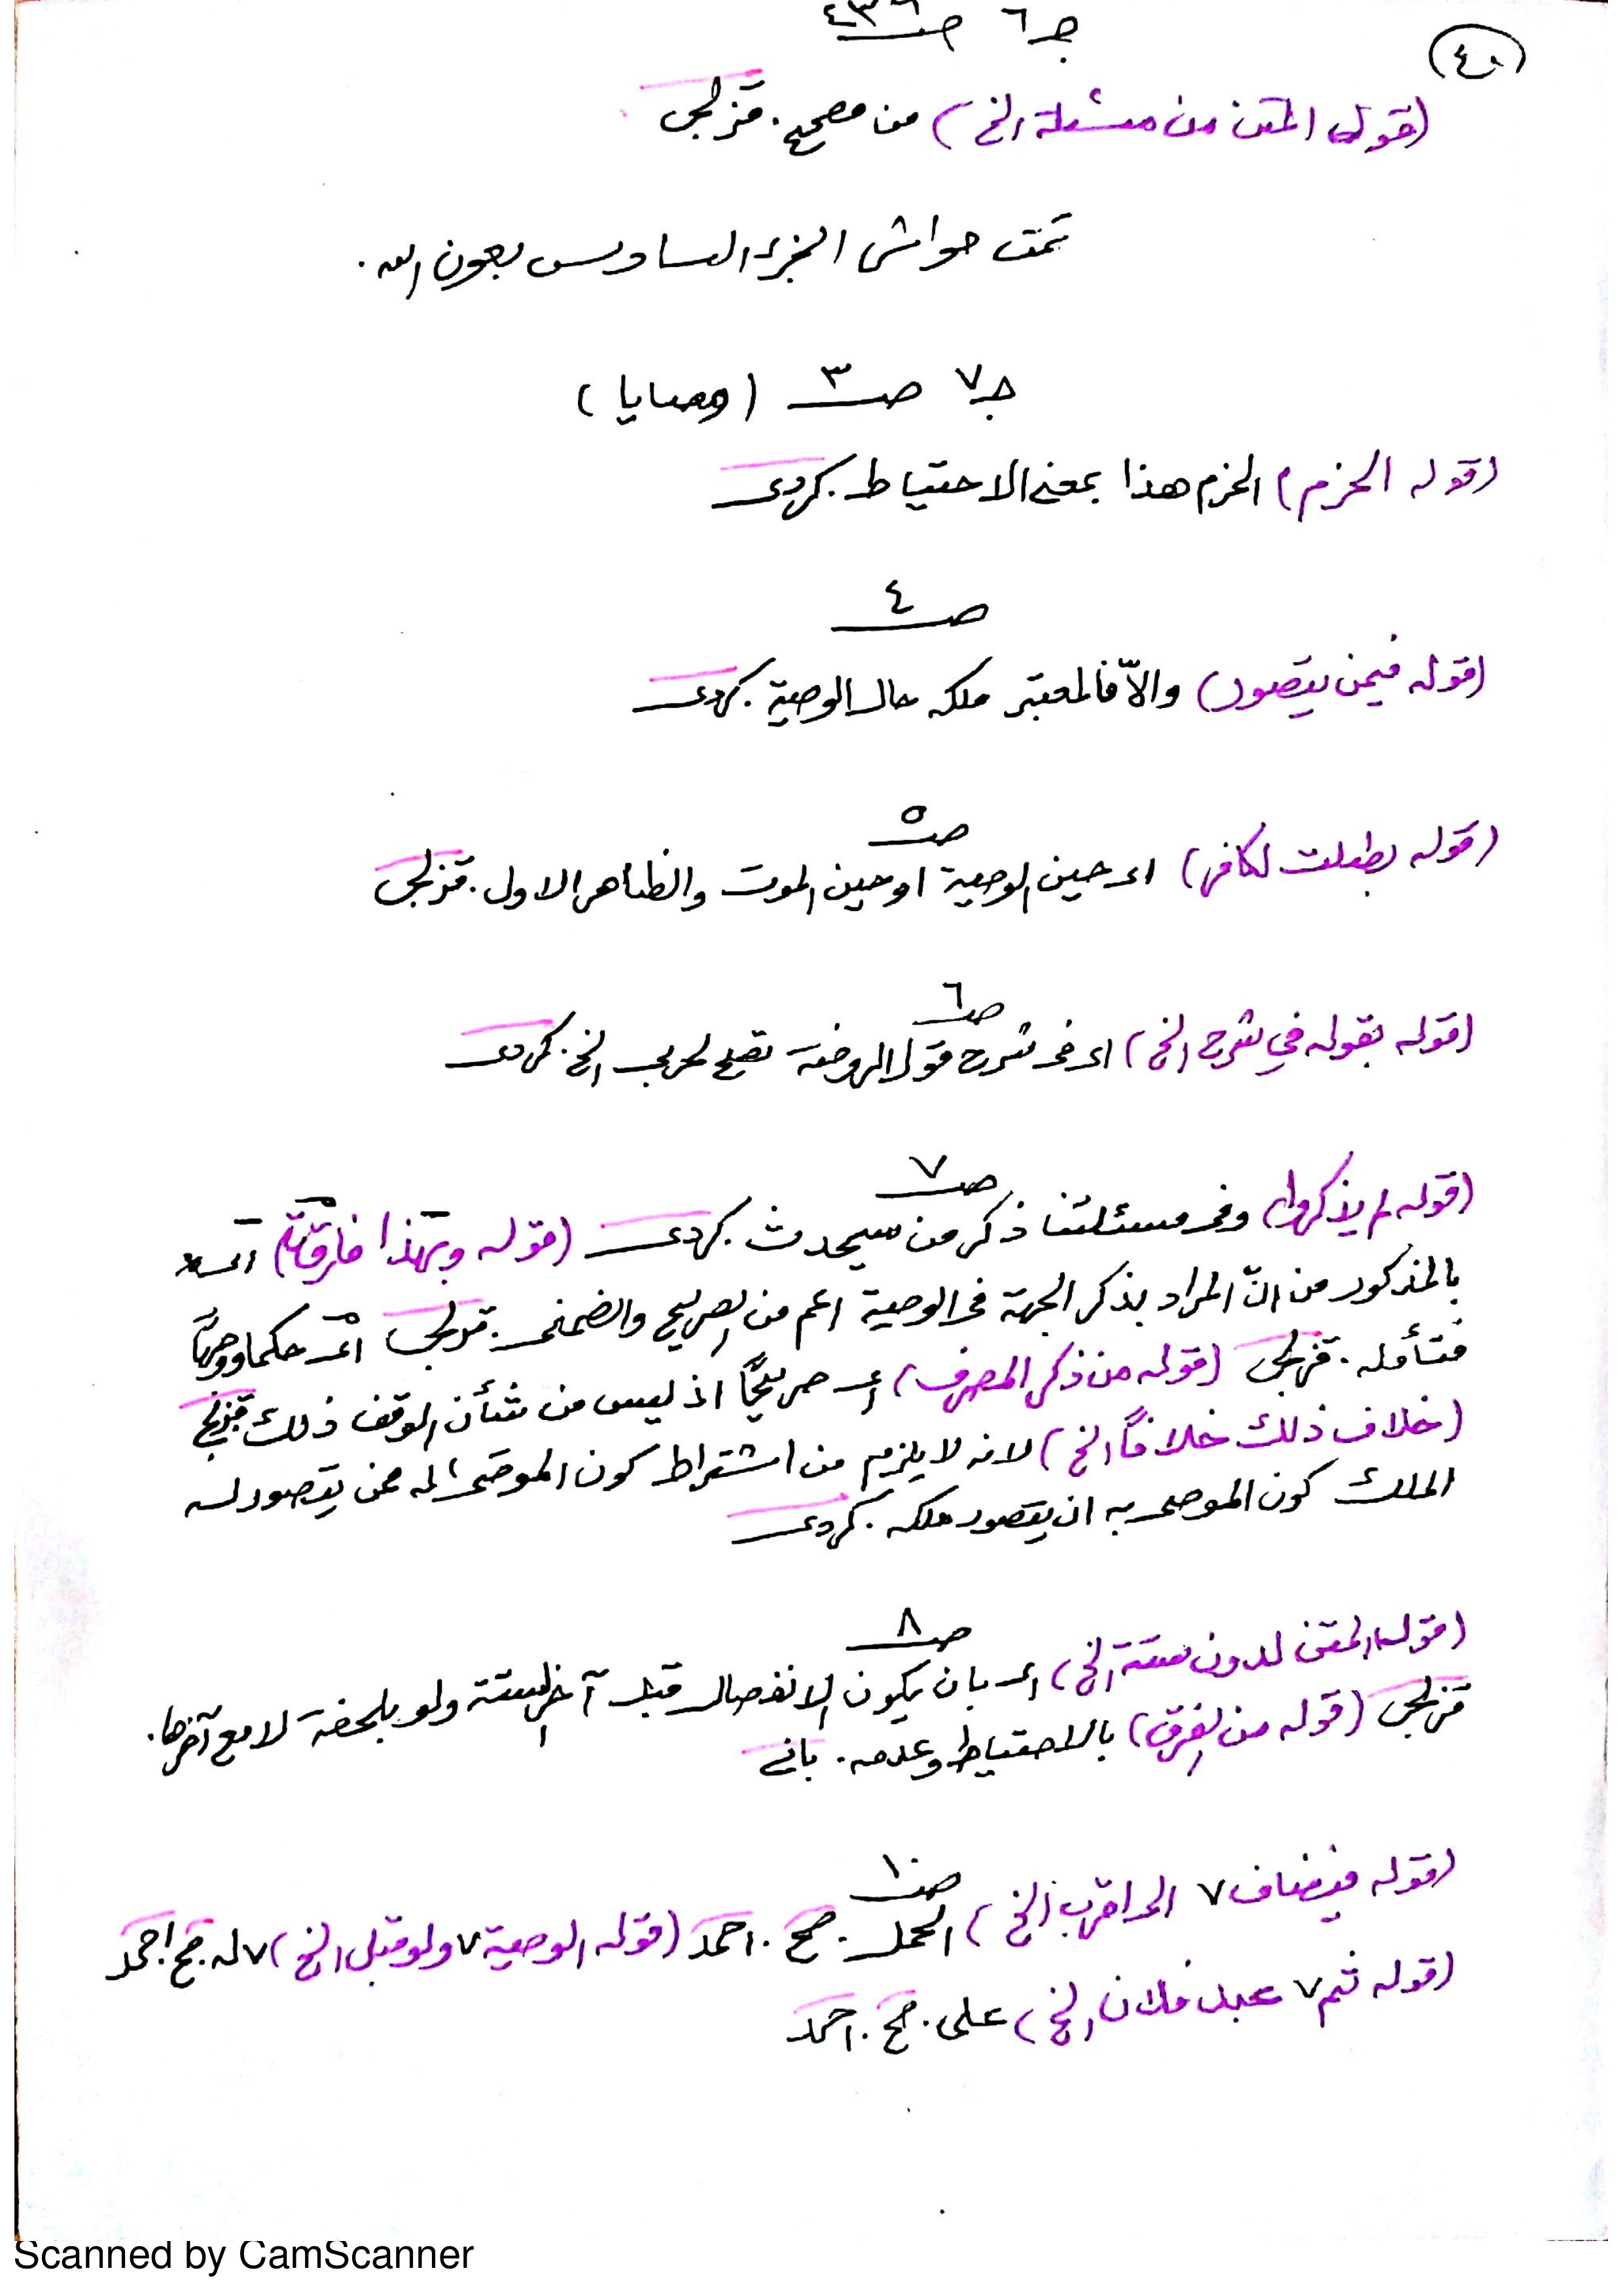 جـ٦ صـ٤٣٦
(٤٠)
(قول المتن من مسئلة الخ) من مصحح. قزلجى
تمت حواشى الجزء السادس بعون الله.
جـ٧ صـ٣ (وصايا)
(قوله الحزم) الحزم هذا بمعنى الاحتياط. كردى
صـ٤
(قوله فيمن يتصور) والاّ فالمعتبر ملكه حال الوصية. كردى
صـ٥
(قوله بطلت لكافر) اى حين الوصية او حين الموت والظاهر الاول. قزلجى
صـ٦
(قوله بقوله في شرح الخ) اى فى شرح قول الروضة تصح لحربى الخ. كردى
صـ٧
(قوله لم يذكروا) وفى مسئلتنا ذكر من سيحدث. كردى (قوله وبهذا فارقت) اى
بالمذكور من انّ المراد بذكر الجهة فى الوصية اعم من الصريح والضمنى. قزلجى اى حكما ووجهًا
فتأمله. قزلجى (قوله من ذكر المصرف) اى صريحًا اذ ليس من شأن الوقف ذلك قزلجى
(خلاف ذلك خلافًا الخ) لانه لا يلزم من اشتراط كون الموصى له ممن يتصور له
الملك كون الموصى به ان يتصور ملكه. كردى
صـ٨
(قول المتن لدون ستة الخ) اى بان يكون الانفصال قبل آخر الستة ولو بلحظة لا مع آخرها.
قزلجى (قوله من الفرق) بالاحتياط وعدمه. بانى
صـ١٠
(قوله فيضاف٧ الى اقرب الخ) الحمل. صح. احمد (قوله الوصية٧ ولو قبل الخ) ٧له. صح احمد
(قوله ثم٧ عبد فلان الخ) على. صح. احمد
Scanned by CamScanner